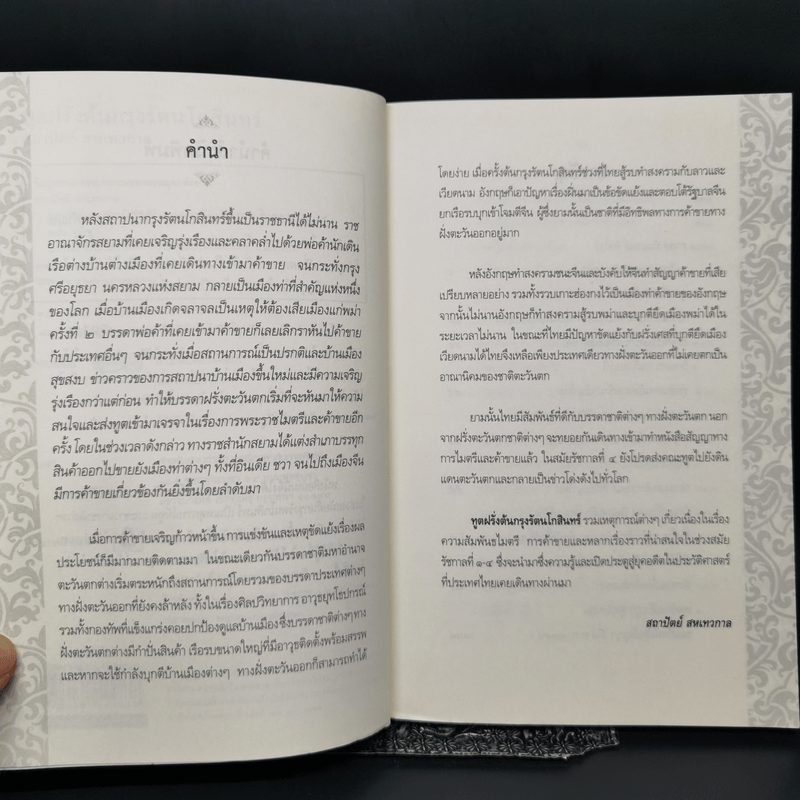 คำนำ
หลังสถาปนากรุงรัตนโกสินทร์ขึ้นเป็นราชธานีได้ไม่นาน ราช
อาณาจักรสยามที่เคยเจริญรุ่งเรืองและคลาคล่ำไปด้วยพ่อค้านักเดิน
เรือต่างบ้านต่างเมืองที่เคยเดินทางเข้ามาค้าขาย จนกระทั่งกรุง
ศรีอยุธยา นครหลวงแห่งสยาม กลายเป็นเมืองท่าที่สำคัญแห่งหนึ่ง
ของโลก เมื่อบ้านเมืองเกิดจลาจลเป็นเหตุให้ต้องเสียเมืองแก่พม่า
ครั้งที่ ๒ บรรดาพ่อค้าที่เคยเข้ามาค้าขายก็เลยเลิกราหันไปค้าขาย
กับประเทศอื่นๆ จนกระทั่งเมื่อสถานการณ์เป็นปรกติและบ้านเมือง
สุขสงบ ข่าวคราวของการสถาปนาบ้านเมืองขึ้นใหม่และมีความเจริญ
รุ่งเรืองกว่าแต่ก่อน ทำให้บรรดาฝรั่งตะวันตกเริ่มที่จะหันมาให้ความ
สนใจและส่งทูตเข้ามาเจรจาในเรื่องการพระราชไมตรีและค้าขายอีก
ครั้ง โดยในช่วงเวลาดังกล่าว ทางราชสำนักสยามได้แต่งสำเภาบรรทุก
สินค้าออกไปขายยังเมืองท่าต่างๆ ทั้งที่อินเดีย ชวา จนไปถึงเมืองจีน
มีการค้าขายเกี่ยวข้องกันยิ่งขึ้นโดยลำดับมา
เมื่อการค้าขายเจริญก้าวหน้าขึ้น การแข่งขันและเหตุขัดแย้งเรื่องผล
ประโยชน์ก็มีมากมายติดตามมา ในขณะเดียวกันบรรดาชาติมหาอำนาจ
ตะวันตกต่างเริ่มตระหนักถึงสถานการณ์โดยรวมของบรรดาประเทศต่างๆ
ทางฝั่งตะวันออกที่ยังคงล้าหลัง ทั้งในเรื่องศิลปวิทยาการ อาวุธยุทโธปกรณ์
รวมทั้งกองทัพที่แข็งแกร่งคอยปกป้องดูแลบ้านเมือง ซึ่งบรรดาชาติต่างๆ ทาง
ฝั่งตะวันตกต่างมีกำปั่นสินค้า เรือรบขนาดใหญ่ที่มีอาวุธติดตั้งพร้อมสรรพ
และหากจะใช้กำลังบุกตีบ้านเมืองต่างๆ ทางฝั่งตะวันออกก็สามารถทำได้
โดยง่าย เมื่อครั้งต้นกรุงรัตนโกสินทร์ช่วงที่ไทยสู้รบทำสงครามกับลาวและ
เวียดนาม อังกฤษก็เอาปัญหาเรื่องฝิ่นมาเป็นข้อขัดแย้งและตอบโต้รัฐบาลจีน
ยกเรือรบบุกเข้าโจมตีจีน ผู้ซึ่งยามนั้นเป็นชาติที่มีอิทธิพลทางการค้าขายทาง
ฝั่งตะวันออกอยู่มาก
หลังอังกฤษทำสงครามชนะจีนและบังคับให้จีนทำสัญญาค้าขายที่เสีย
เปรียบหลายอย่าง รวมทั้งรวบเกาะฮ่องกงไว้เป็นเมืองทำค้าขายของอังกฤษ
จากนั้นไม่นานอังกฤษก็ทำสงครามสู้รบพม่าและบุกตียึดเมืองพม่าได้ใน
ระยะเวลาไม่นาน ในขณะที่ไทยมีปัญหาขัดแย้งกับฝรั่งเศสที่บุกตียึดเมือง
เวียดนามได้ไทยจึงเหลือเพียงประเทศเดียวทางฝั่งตะวันออกที่ไม่เคยตกเป็น
อาณานิคมของชาติตะวันตก
ยามนั้นไทยมีสัมพันธ์ที่ดีกับบรรดาชาติต่างๆ ทางฝั่งตะวันตก นอก
จากฝรั่งตะวันตกชาติต่างๆ จะทยอยกันเดินทางเข้ามาทำหนังสือสัญญาทาง
การไมตรีและค้าขายแล้ว ในสมัยรัชกาลที่ ๔ ยังโปรดส่งคณะทูตไปยังดิน
แดนตะวันตกและกลายเป็นข่าวโด่งดังไปทั่วโลก
ทูตฝรั่งต้นกรุงรัตนโกสินทร์ รวมเหตุการณ์ต่างๆ เกี่ยวเนื่องในเรื่อง
ความสัมพันธไมตรี การค้าขายและหลากเรื่องราวที่น่าสนใจในช่วงสมัย
รัชกาลที่ ๑-๔ ซึ่งจะนำมาซึ่งความรู้และเปิดประตูสู่ยุคอดีตในประวัติศาสตร์
ที่ประเทศไทยเคยเดินทางผ่านมา
สถาปัตย์ สหเทวกาล